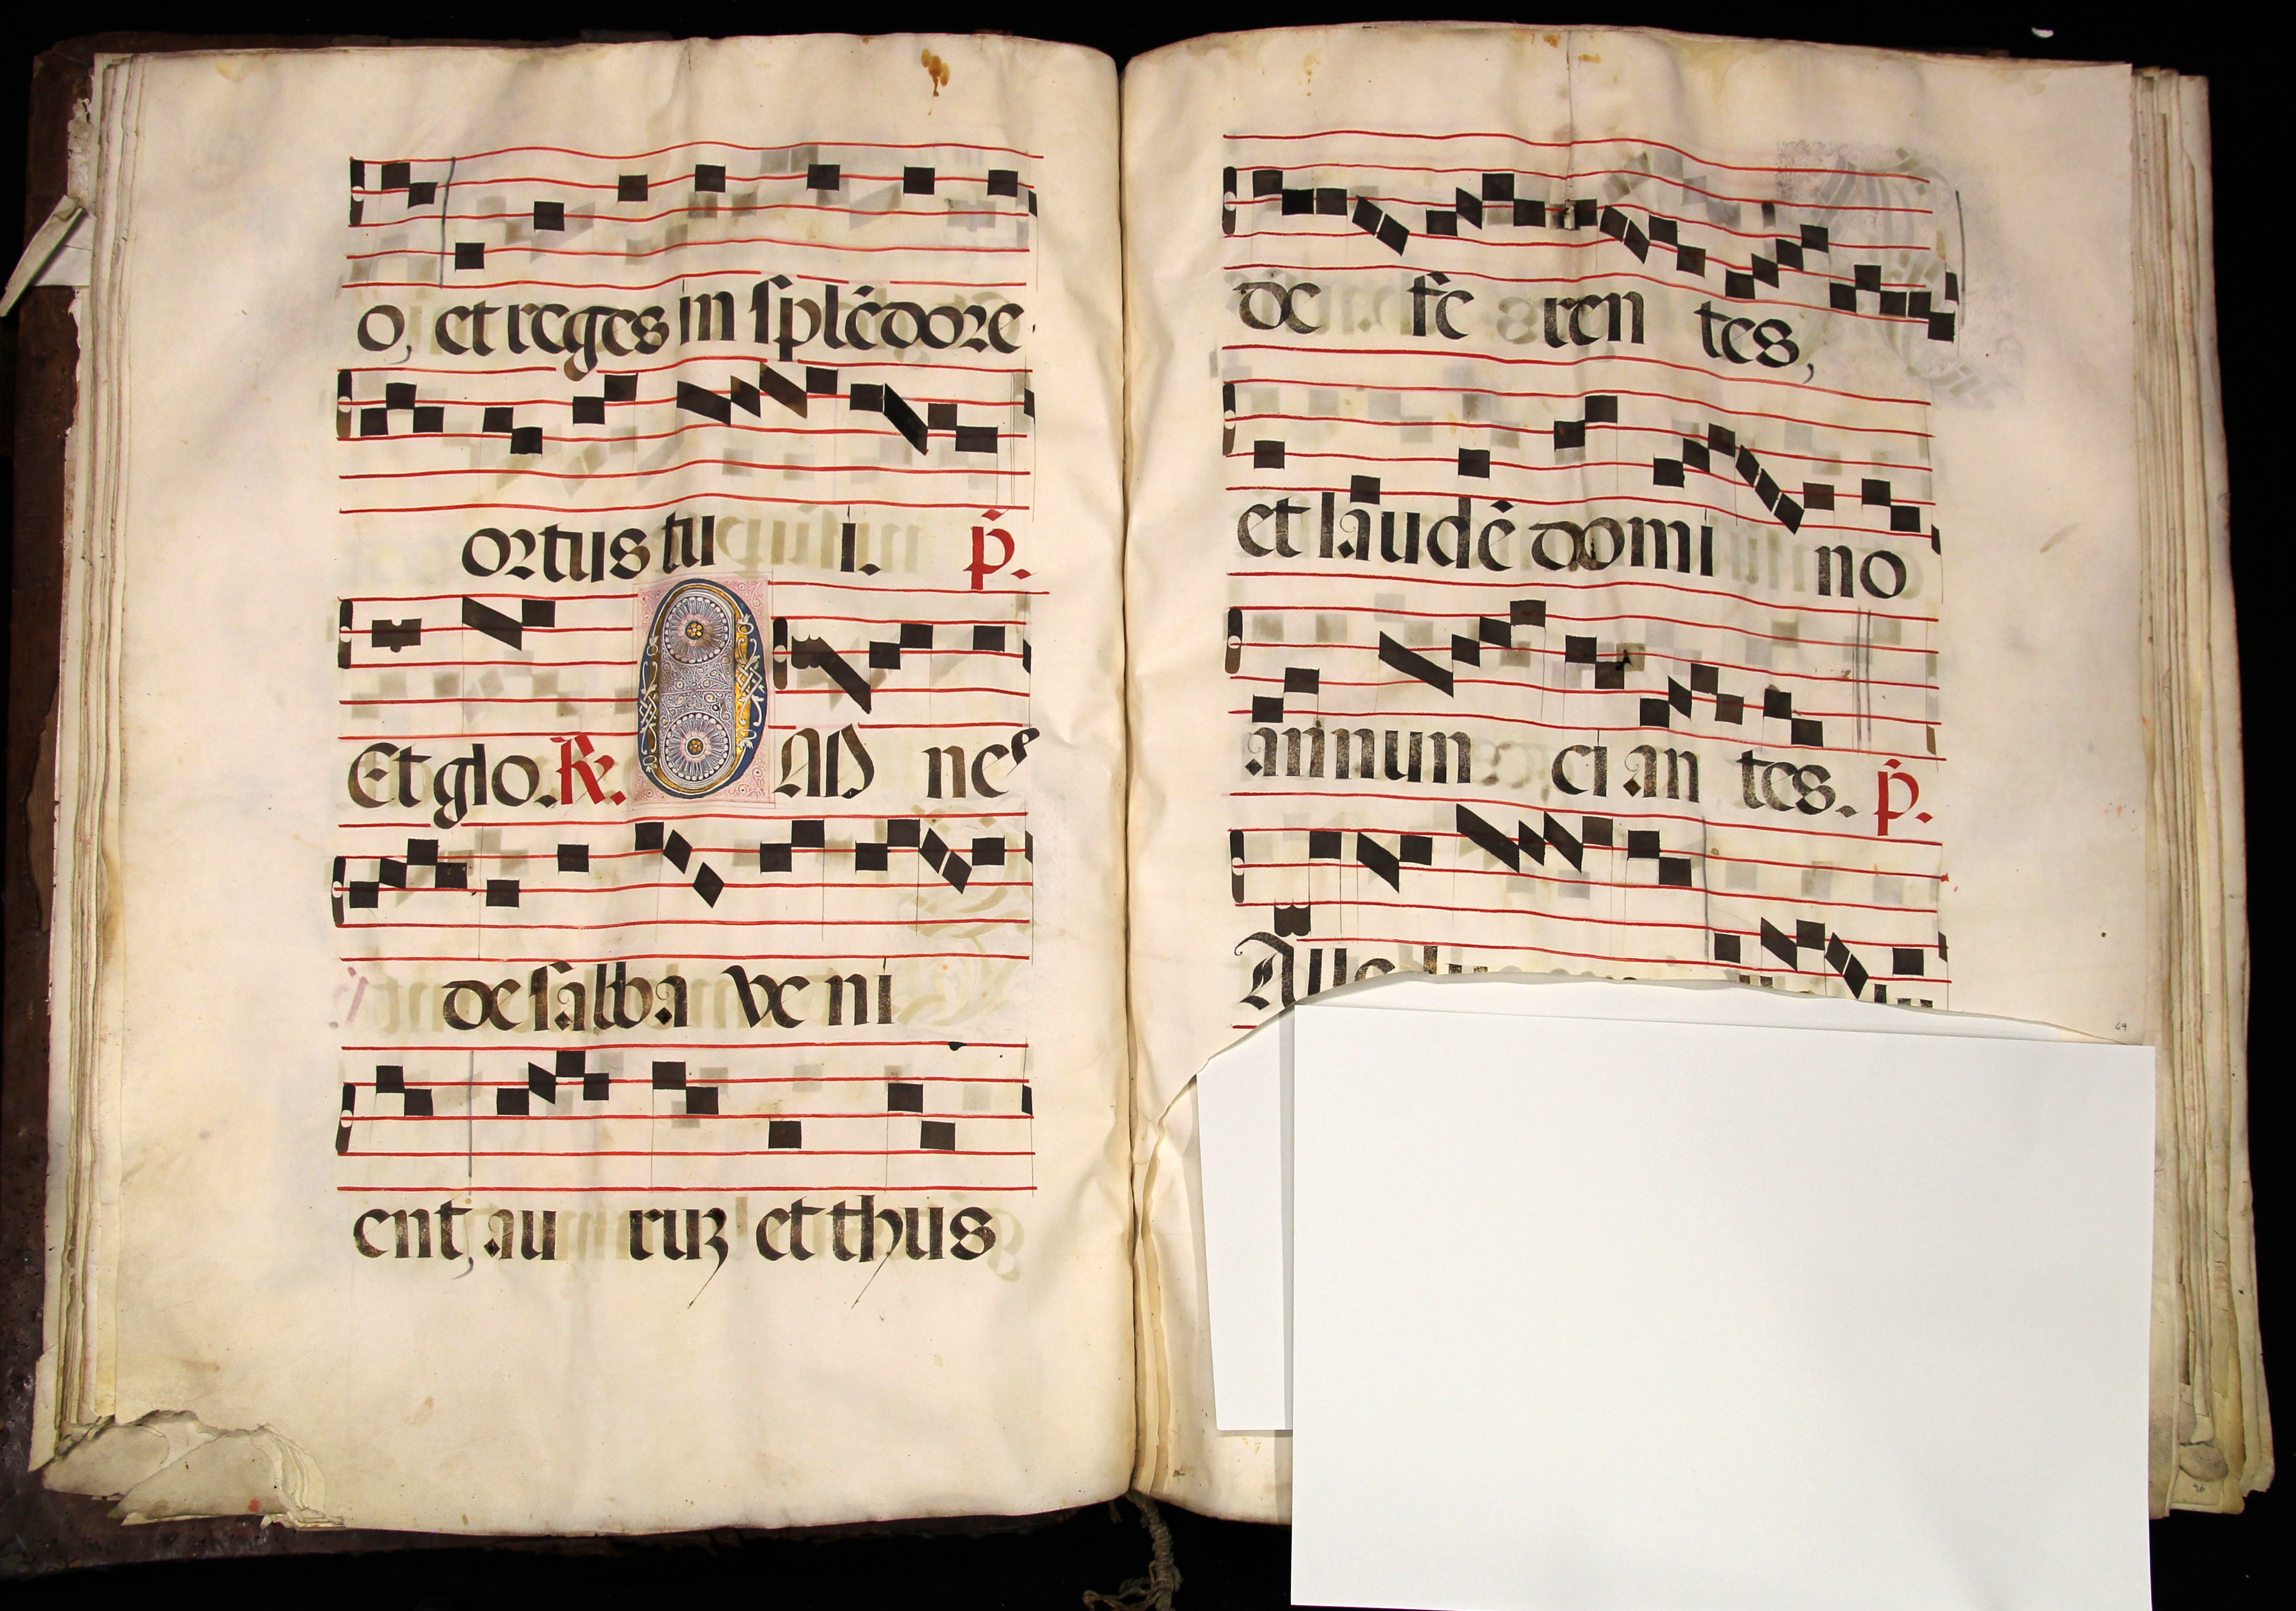 o, et reges in splēdore
ortus tu i. p̄.
Et glo. ℟. OM nes
de saba ve ni
ent, au ruʒ et thus
de fe ren tes,
et laudē domi no
annun ci an tes. p̄.
Alle lu
49